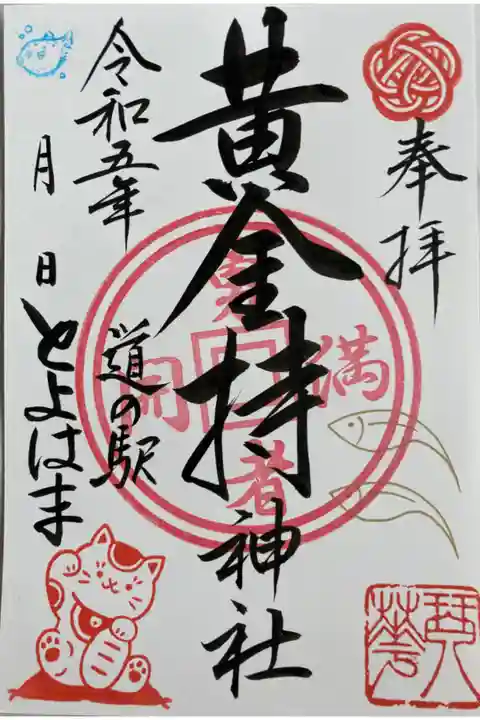 奉拝
黄金持神社
満
開
者
道の駅
令和五年
月 日
とよはま